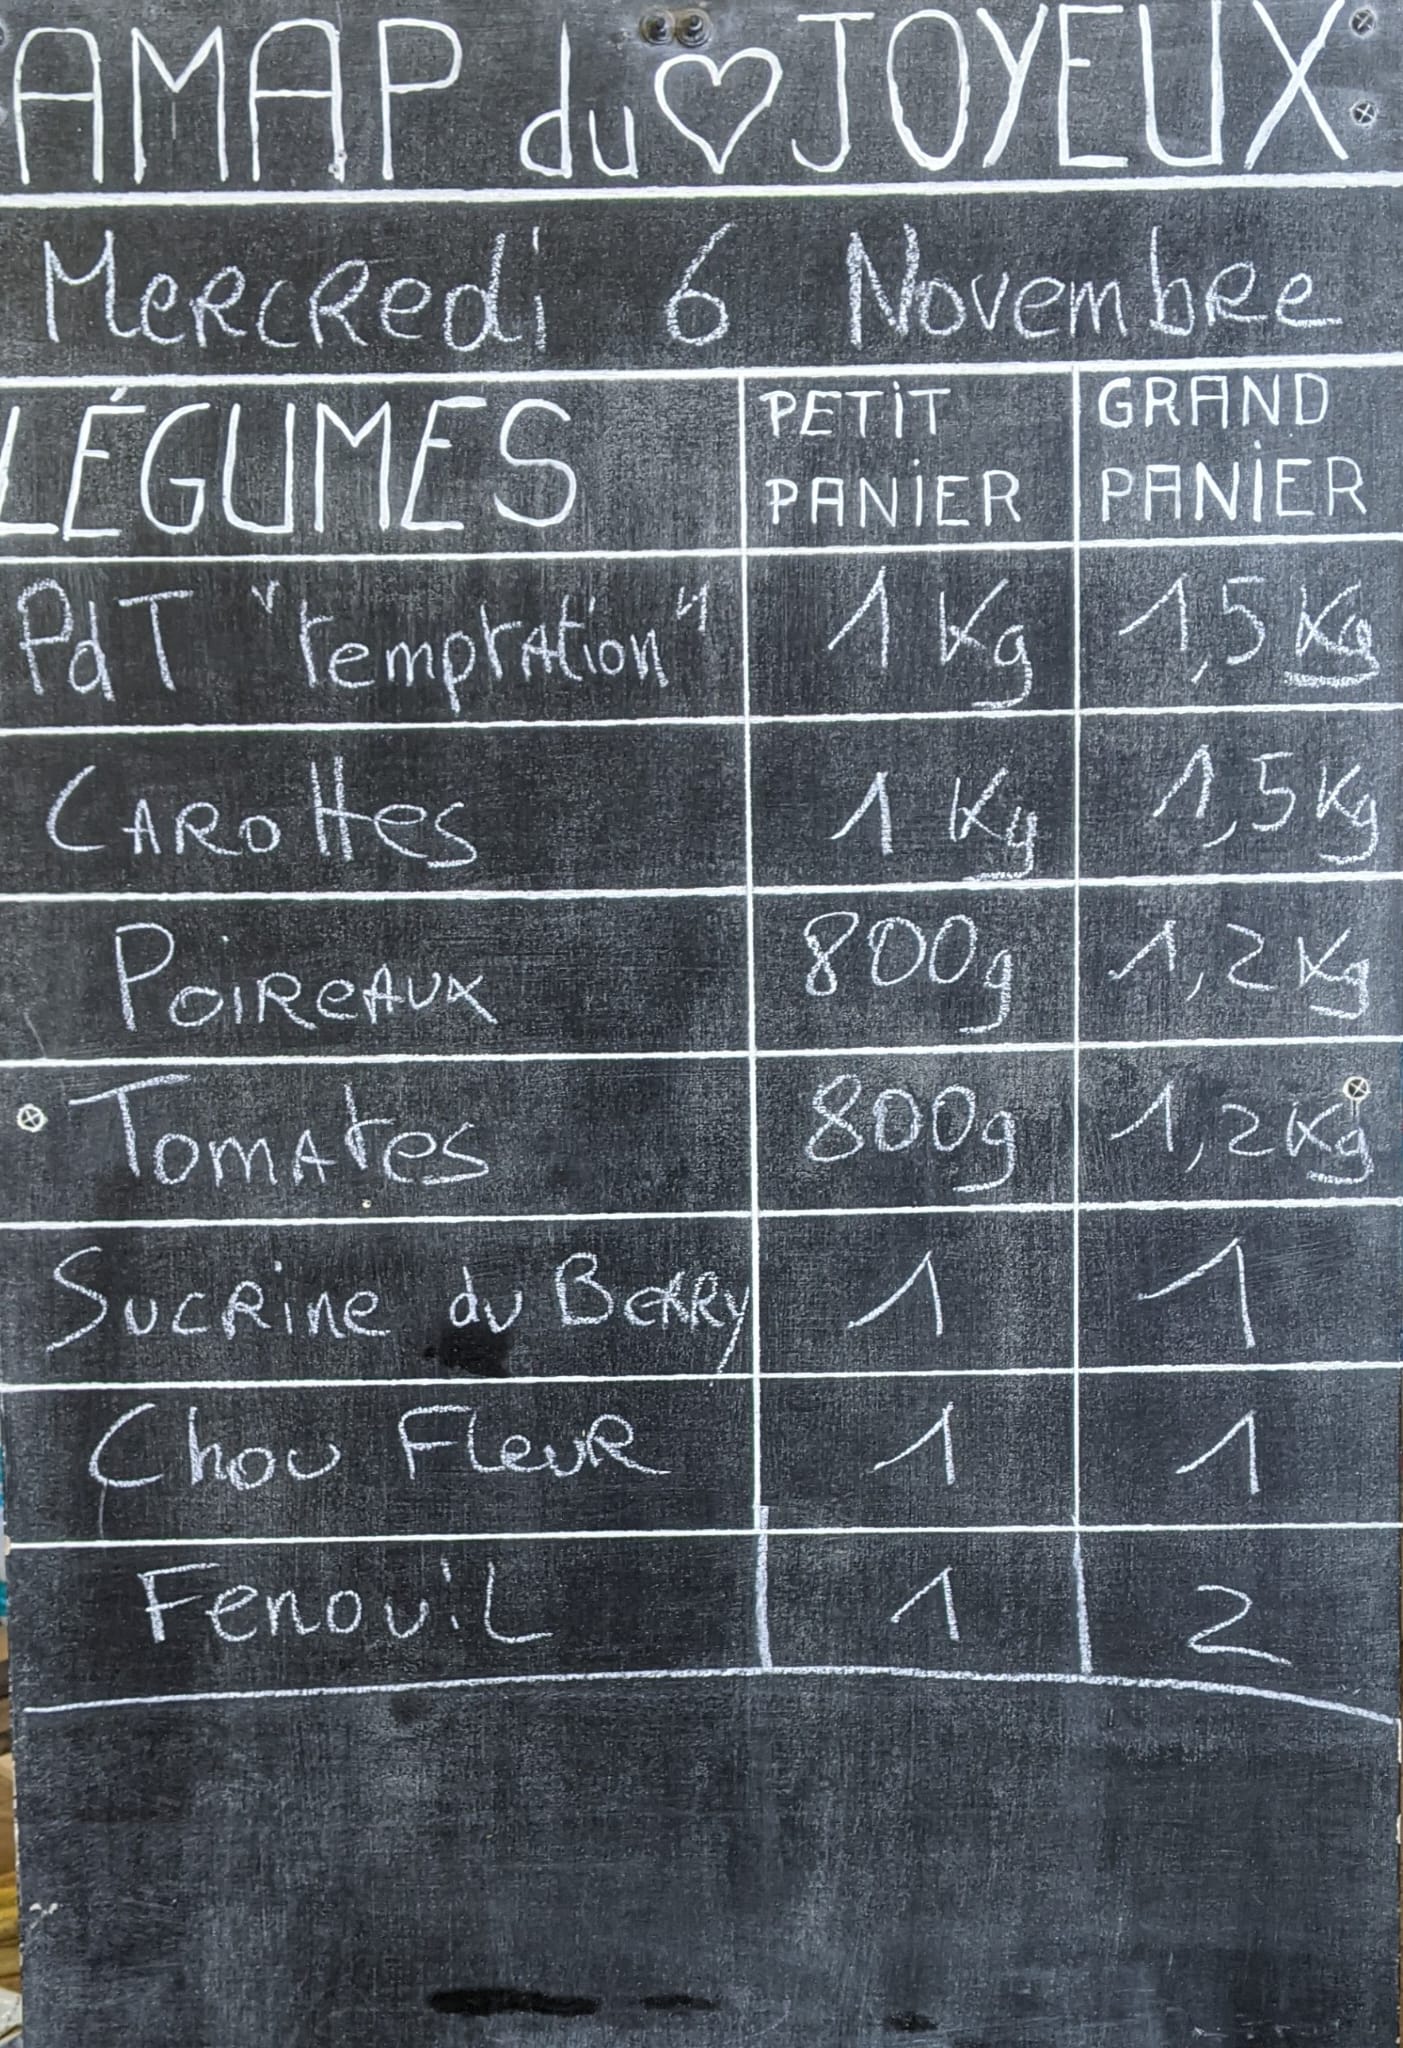 AMAP du ♡ JOYEUX
Mercredi 6 Novembre
LÉGUMES PETIT PANIER GRAND PANIER
PdT "temptation" 1 Kg 1,5 Kg
Carottes 1 Kg 1,5 Kg
Poireaux 800g 1,2 Kg
Tomates 800g 1,2 Kg
Sucrine du Berry 1 1
Chou Fleur 1 1
Fenouil 1 2